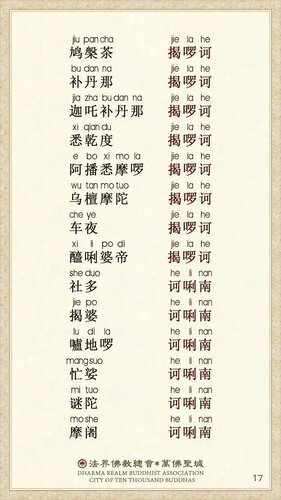 jiu pan cha jie la he
鸠槃茶 揭啰诃
bu dan na jie la he
补丹那 揭啰诃
jia zha bu dan na jie la he
迦吒补丹那 揭啰诃
xi qian du jie la he
悉乾度 揭啰诃
e bo xi mo la jie la he
阿播悉摩啰 揭啰诃
wu tan mo tuo jie la he
乌檀摩陀 揭啰诃
che ye jie la he
车夜 揭啰诃
xi li po di jie la he
醯唎婆帝 揭啰诃
she duo he li nan
社多 诃唎南
jie po he li nan
揭婆 诃唎南
lu di la he li nan
嚧地啰 诃唎南
mang suo he li nan
忙娑 诃唎南
mi tuo he li nan
谜陀 诃唎南
mo she he li nan
摩阇 诃唎南
法界佛教總會•萬佛聖城
DHARMA REALM BUDDHIST ASSOCIATION
CITY OF TEN THOUSAND BUDDHAS
17